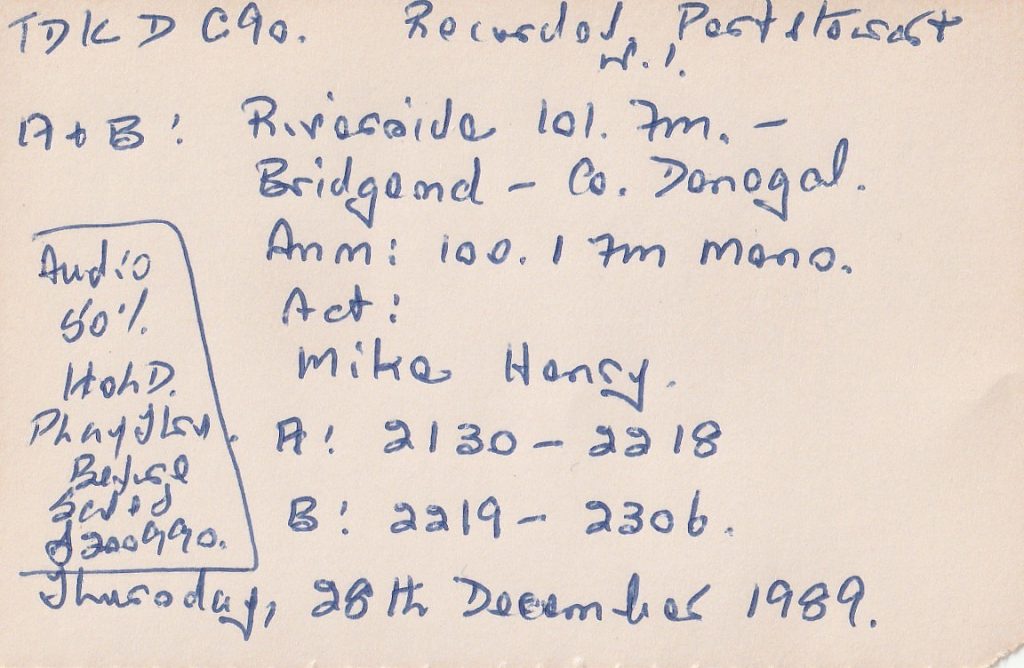 TDK D C90. Recorded. Portstewart
N.I.
A + B: Riverside 101. FM. -
Bridgend - Co. Donegal.
Ann: 100.1 FM Mono.
Act:
Mike Henry.
A: 2130 - 2218
B: 2219 - 2306.
Audio
50%.
HOLD.
Play
Before
Thursday, 28th December 1989.